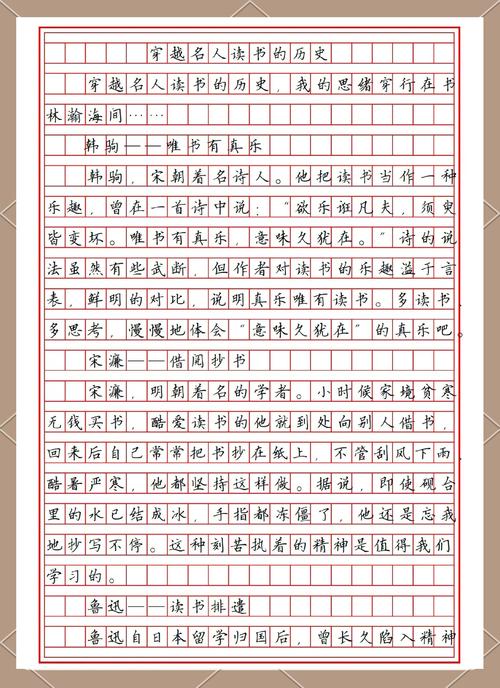 穿越名人读书的历史
穿越名人读书的历史，我的思绪穿行在书
林瀚海间……
韩驹——唯书有真乐
韩驹，宋朝着名诗人。他把读书当作一种
乐趣，曾在一首诗中说：“欲乐诳凡夫，须臾
皆变坏。唯书有真乐，意味久犹在。”诗的说
法虽然有些武断，但作者对读书的乐趣溢于言
表，鲜明的对比，说明真乐唯有读书。多读书，
多思考，慢慢地体会“意味久犹在”的真乐吧。
宋濂——借阅抄书
宋濂，明朝着名的学者。小时候家境贫寒
无钱买书，酷爱读书的他就到处向别人借书，
回来后自己常常把书抄在纸上，不管刮风下雨，
酷暑严寒，他都坚持这样做。据说，即使砚台
里的水已结成冰，手指都冻僵了，他还是忘我
地抄写不停。这种刻苦执着的精神是值得我们
学习的。
鲁迅——读书排遣
鲁迅自日本留学归国后，曾长久陷入精神